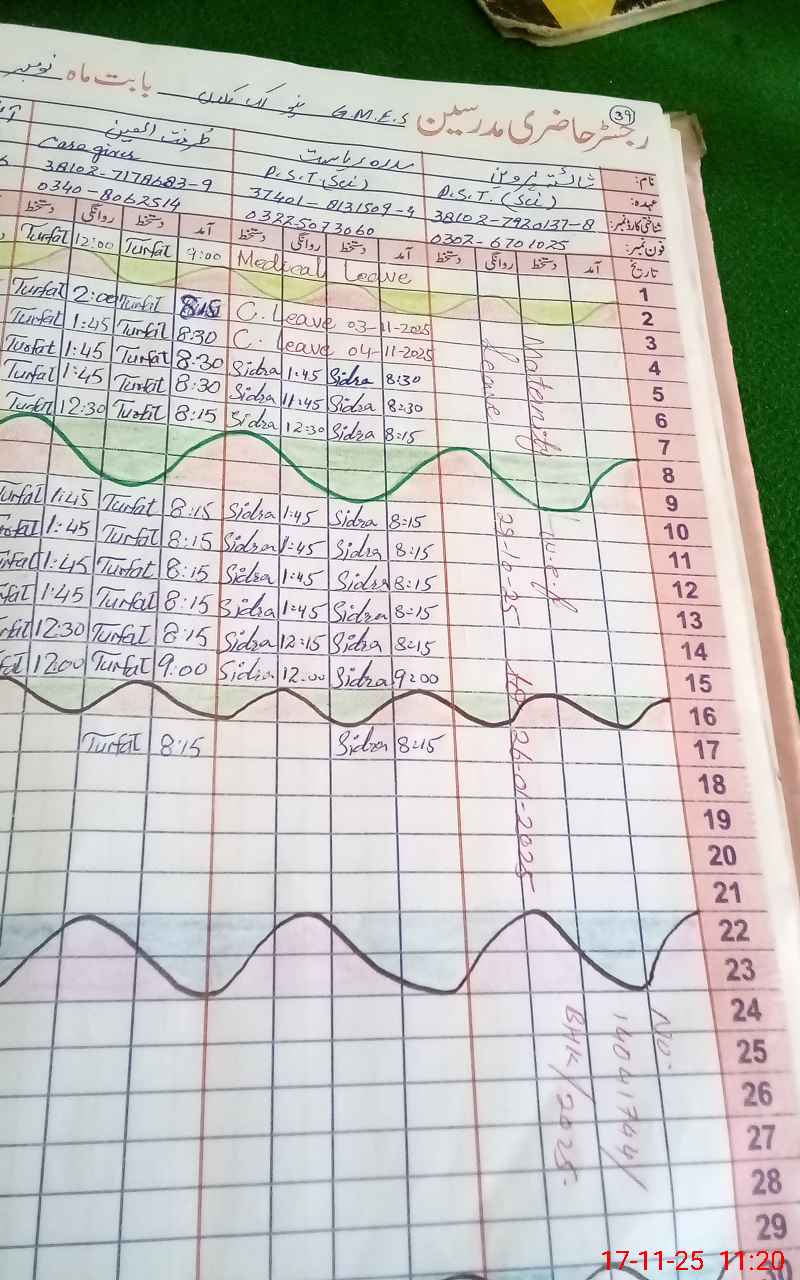 39
رجسٹر حاضری مدرسین G.M.E.S بابت ماہ نومبر
نام: شائستہ پروین سدرہ ریاست طرفت العین
عہدہ: P.S.T. (Sci) P.S.T (Sci) Care giver
شناختی کارڈ نمبر: 38102-7920137-8 37401-8131509-4 38102-7178683-9
فون نمبر: 0302-6701025 03225073060 0340-8062514
تاریخ آمد دستخط روانگی دستخط آمد دستخط روانگی دستخط آمد دستخط روانگی دستخط
1 Medical Leave 9:00 Turfat 12:00 Turfat
2
3 C. Leave 03-11-2025 8:15 Turfat 2:00 Turfat
4 C. Leave 04-11-2025 8:30 Turfat 1:45 Turfat
5 8:30 Sidra 1:45 Sidra 8:30 Turfat 1:45 Turfat
6 8:30 Sidra 11:45 Sidra 8:30 Turfat 1:45 Turfat
7 8:15 Sidra 12:30 Sidra 8:15 Turfat 12:30 Turfat
8
9
10 8:15 Sidra 1:45 Sidra 8:15 Turfat 1:45 Turfat
11 8:15 Sidra 1:45 Sidra 8:15 Turfat 1:45 Turfat
12 8:15 Sidra 1:45 Sidra 8:15 Turfat 1:45 Turfat
13 8:15 Sidra 1:45 Sidra 8:15 Turfat 1:45 Turfat
14 8:15 Sidra 12:15 Sidra 8:15 Turfat 12:30 Turfat
15 9:00 Sidra 12:00 Sidra 9:00 Turfat 12:00 Turfat
16
17 8:15 Sidra 8:15 Turfat
18
19
20
21
22
23
24
25
26
27
28
29
30
Maternity w.e.f
Leave 29-10-25 to 26-01-2025
No:
14041744/
BHK/2025
17-11-25 11:20